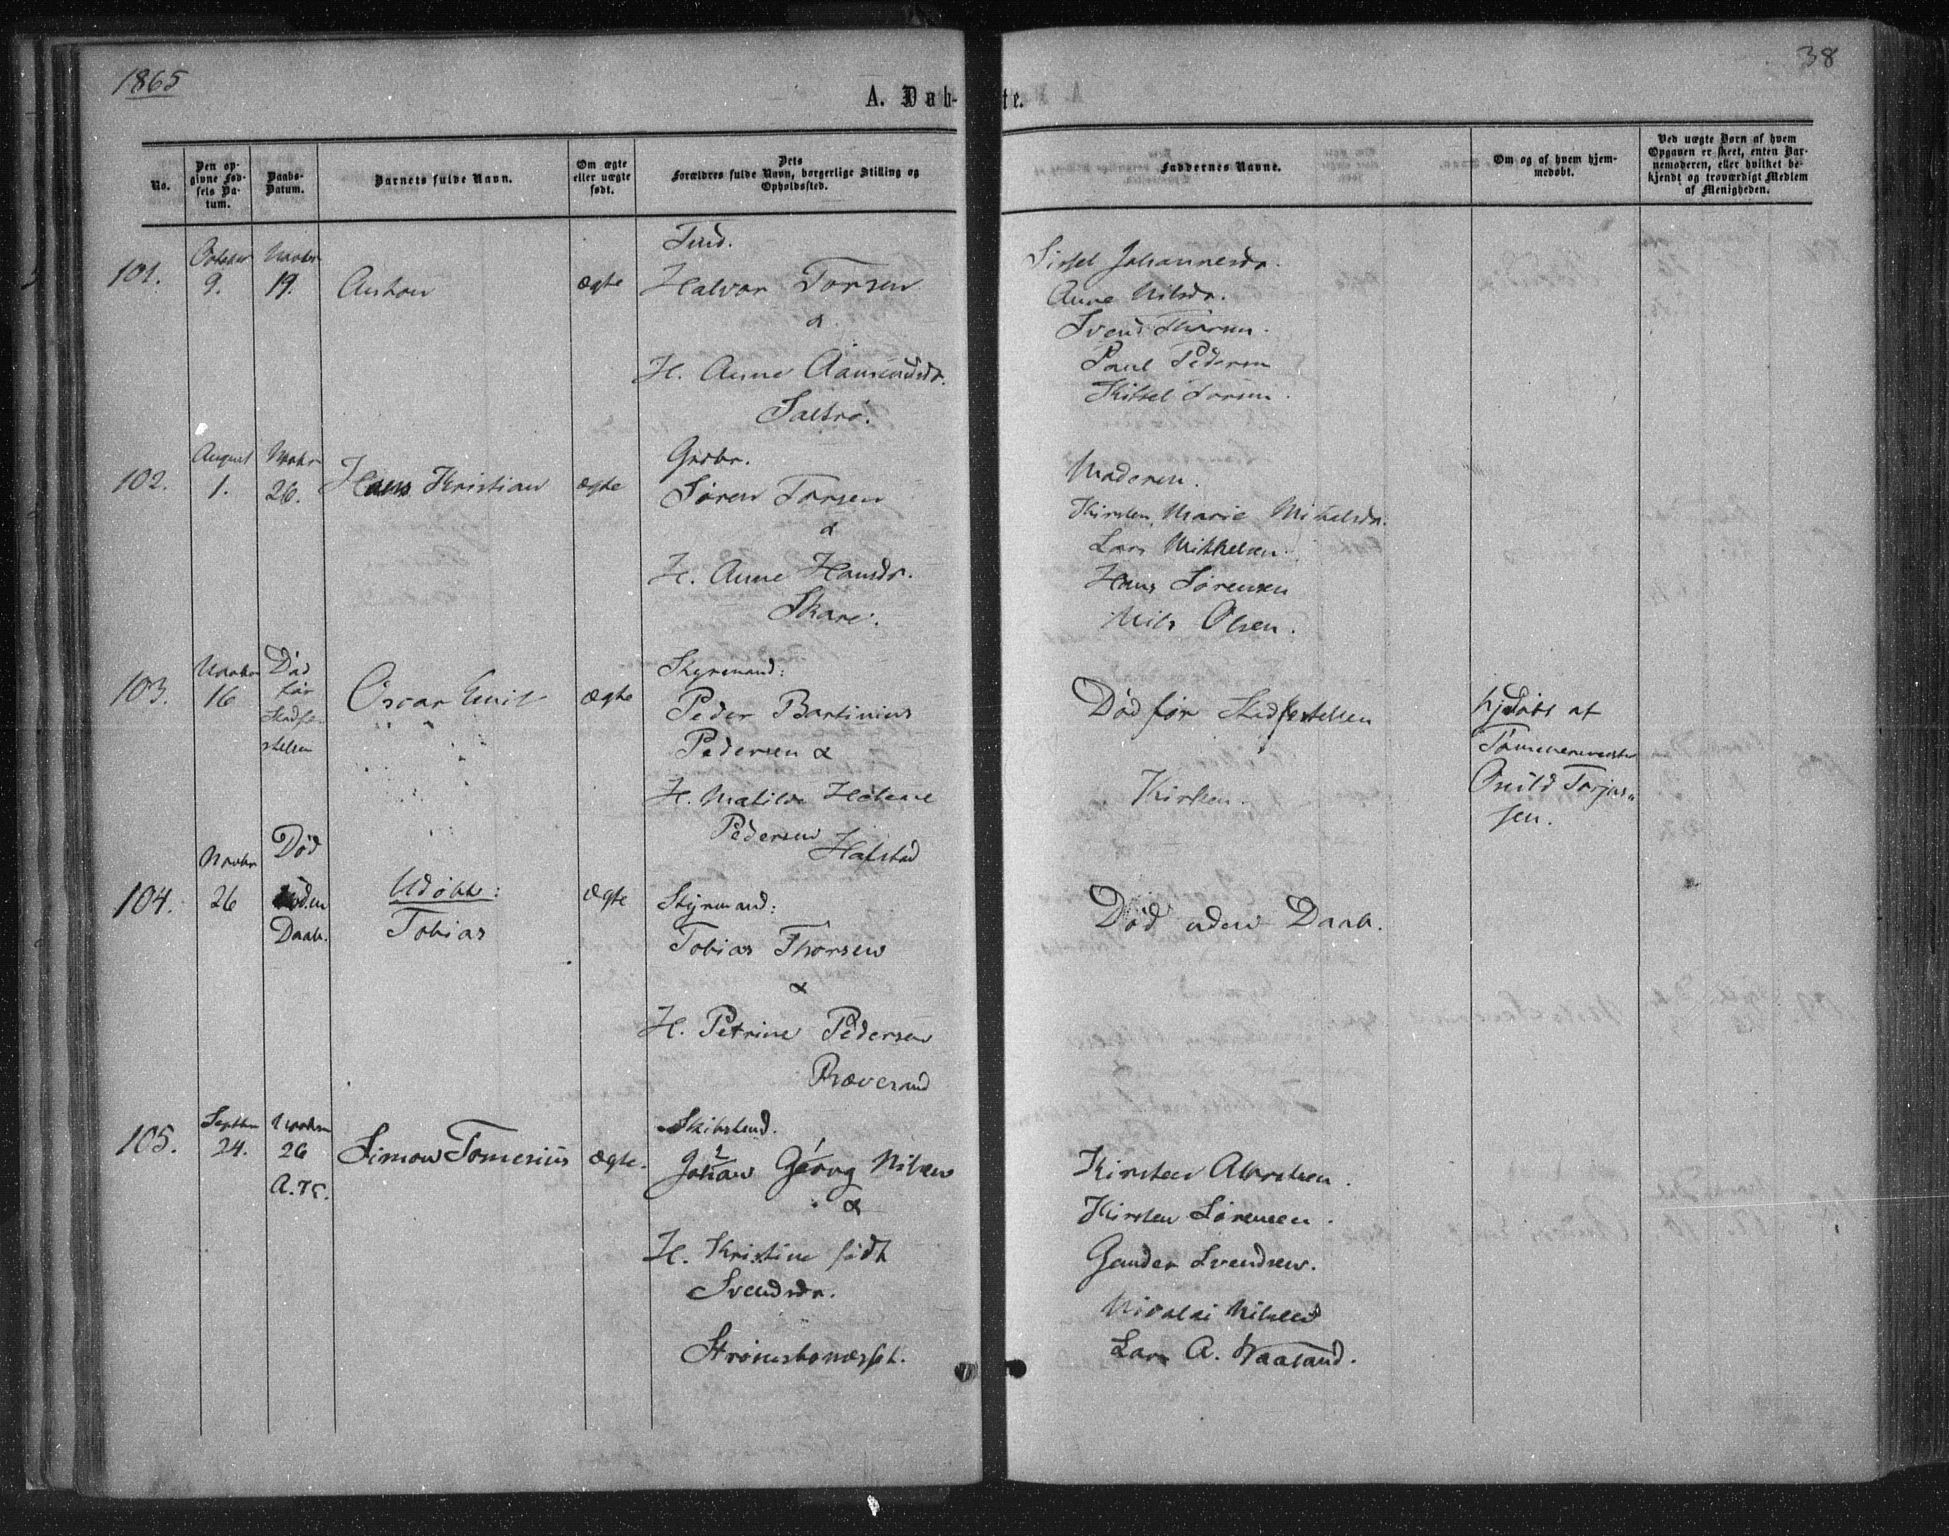 1865
38
A. Døbte.
No.
Den opgivne Fødsels Datum.
Daabs-Datum.
Barnets fulde Navn.
Om ægte eller uægte født.
Dets Forældres fulde Navn, borgerlige Stilling og Opholdssted.
Faddernes Navne.
Om og af hvem hjemmedøbt.
Ved uægte Børn af hvem Opgaven er skeet, enten Barnemoderen, eller hvilket bekjendt og troværdigt Medlem af Menigheden.
101.
October
9.
Novbr
19.
ægte
Halvor Torsen
&
H. Anne Aamundsdr.
Saltrø.
Sissel Johannesdr.
Anne Nilsdr.
Paul Pedersen
102.
August
1.
Novbr
26.
Hans Kristian
ægte
Grdbr.
Søren Torsen
&
H. Anne Hansdr.
Skare.
Moderen.
Kirsten Marie Mikelsdr.
Lars Mikkelsen.
Hans Sørensen
Nils Olsen.
103.
Novbr
16
Død
før
Stadfæ-
stelsen
Oscar Emil
ægte
Styrmand:
Peder Bertinius
Pedersen &
H. Matilde Helene
Pedersen
Død før Stadfæstelsen
Kirken.
hjdøbt af
Tømmermester
104.
Novbr
26
Død
uden
Daab.
Udøbt:
Tobias
ægte
Styrmand:
Tobias Thorsen
&
H. Petrine Pedersen
Død uden Daab.
105.
Septbr
24.
Novbr
26
Simon Tomenius
ægte.
Johan Georg Nilsen
&
H. Kristine født
Svendsdr.
Kirsten Sørensen.
Gunder Svendsen.
Nicolai Nilsen
Lars A. Vaaland.